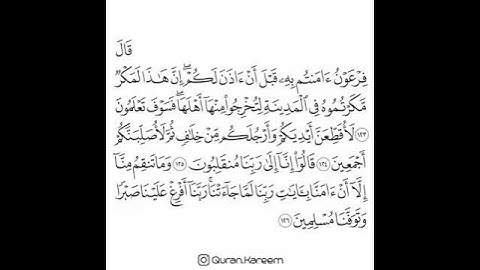 قَالَ
فِرْعَوْنُ ءَامَنتُم بِهِۦ قَبْلَ أَنْ ءَاذَنَ لَكُمْ ۖ إِنَّ هَٰذَا لَمَكْرٌ
مَّكَرْتُمُوهُ فِى ٱلْمَدِينَةِ لِتُخْرِجُوا۟ مِنْهَآ أَهْلَهَا ۖ فَسَوْفَ تَعْلَمُونَ
﴿١٢٣﴾ لَأُقَطِّعَنَّ أَيْدِيَكُمْ وَأَرْجُلَكُم مِّنْ خِلَٰفٍ ثُمَّ لَأُصَلِّبَنَّكُمْ
أَجْمَعِينَ ﴿١٢٤﴾ قَالُوٓا۟ إِنَّآ إِلَىٰ رَبِّنَا مُنقَلِبُونَ ﴿١٢٥﴾ وَمَا تَنقِمُ مِنَّآ
إِلَّآ أَنْ ءَامَنَّا بِـَٔايَٰتِ رَبِّنَا لَمَّا جَآءَتْنَا ۚ رَبَّنَآ أَفْرِغْ عَلَيْنَا صَبْرًا
وَتَوَفَّنَا مُسْلِمِينَ ﴿١٢٦﴾
Quran.Kareem